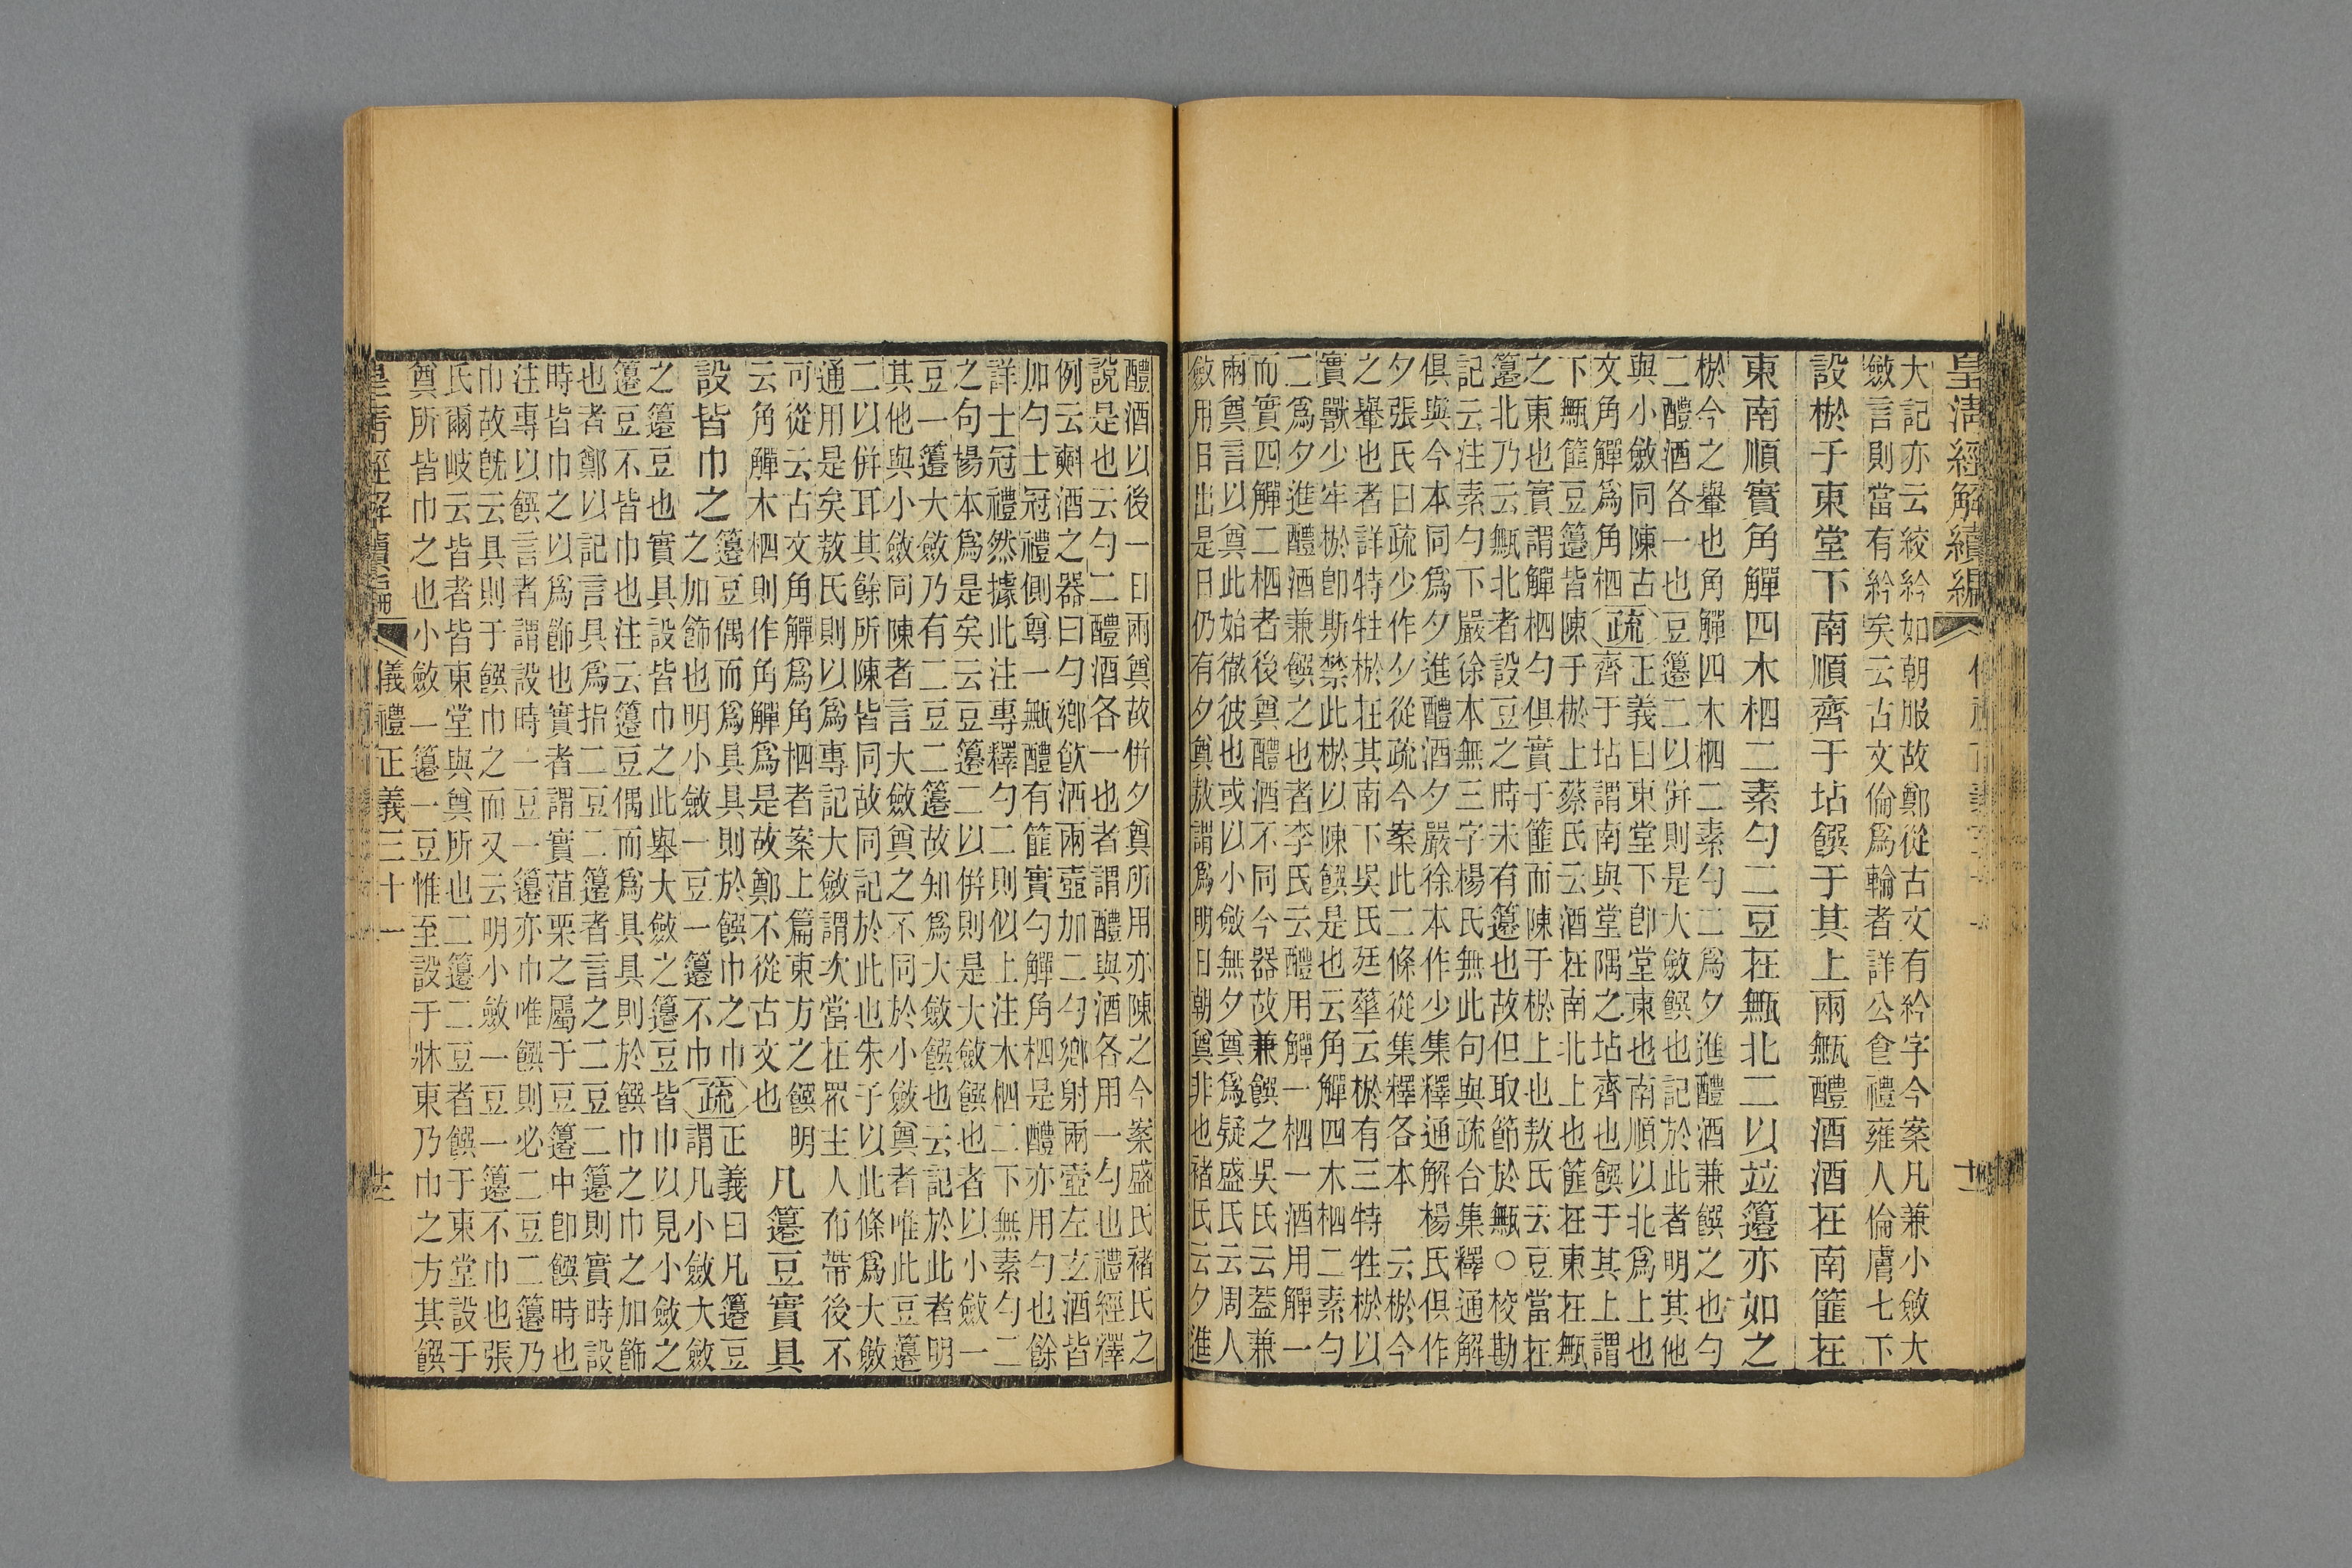 皇清經解續編
大記亦云絞紟如朝服故鄭從古文有紟字今案凡兼小斂大
斂言則當有紟矣云古文倫爲輪者詳公食禮雍人倫膚七下
設棜于東堂下南順齊于坫饌于其上兩甒醴酒酒在南篚在
東南順實角觶四木柶二素勺二豆在甒北二以竝籩亦如之
棜今之轝也角觶四木柶二素勺二爲夕進醴酒兼饌之也勺
二醴酒各一也豆籩二以併則是大斂饌也記於此者明其他
與小斂同陳古
文角觶爲角柶
疏
正義曰東堂下卽堂東也南順以北爲上也
齊于坫謂南與堂隅之坫齊也饌于其上謂
下甒篚豆籩皆陳于棜上蔡氏云酒在南北上也篚在東在甒
之東也實謂觶柶勺俱實于篚而陳于棜上也敖氏云豆當在
籩北乃云甒北者設豆之時未有籩也故但取節於甒○校勘
記云注素勺下嚴徐本無三字楊氏無此句與疏合集釋通解
俱與今本同爲夕進醴酒夕嚴徐本作少集釋通解楊氏俱作
夕張氏曰疏少作夕從疏今案此二條從集釋各本 云棜今
之轝也者詳特牲棜在其南下吳氏廷華云棜有三特牲棜以
實獸少牢棜卽斯禁此棜以陳饌是也云角觶四木柶二素勺
二爲夕進醴酒兼饌之也者李氏云醴用觶一柶一酒用觶一
而實四觶二柶者後奠醴酒不同今器故兼饌之吳氏云蓋兼
兩奠言以奠此始徹彼也或以小斂無夕奠爲疑盛氏云周人
斂用日出是日仍有夕奠敖謂爲明日朝奠非也褚氏云夕進
醴酒以後一日兩奠故併夕奠所用亦陳之今案盛氏褚氏之
說是也云勺二醴酒各一也者謂醴與酒各用一勺也禮經釋
例云㪺酒之器曰勺鄉飮酒兩壺加二勺鄉射兩壺左玄酒皆
加勺士冠禮側尊一甒醴有篚實勺觶角柶是醴亦用勺也餘
詳士冠禮然據此注專釋勺二則似上注木柶二下無素勺二
之句楊本爲是矣云豆籩二以併則是大斂饌也者以小斂一
豆一籩大斂乃有二豆二籩故知爲大斂饌也云記於此者明
其他與小斂同陳者言大斂奠之不同於小斂奠者唯此豆籩
二以併耳其餘所陳皆同故同記於此也朱子以此條爲大斂
通用是矣敖氏則以爲專記大斂謂次當在眾主人布帶後不
可從云古文角觶爲角柶者案上篇東方之饌明
云角觶木柶則作角觶爲是故鄭不從古文也
凡籩豆實具
設皆巾之
籩豆偶而爲具具則於饌巾之巾
之加飾也明小斂一豆一籩不巾
疏
正義曰凡籩豆
謂凡小斂大斂
之籩豆也實具設皆巾之此舉大斂之籩豆皆巾以見小斂之
籩豆不皆巾也注云籩豆偶而爲具具則於饌巾之巾之加飾
也者鄭以記言具爲指二豆二籩者言之二豆二籩則實時設
時皆巾之以爲飾也實者謂實菹栗之屬于豆籩中卽饌時也
注專以饌言者謂設時一豆一籩亦巾唯饌則必二豆二籩乃
巾故旣云具則于饌巾之而又云明小斂一豆一籩不巾也張
氏爾岐云皆者皆東堂與奠所也二籩二豆者饌于東堂設于
奠所皆巾之也小斂一籩一豆惟至設于牀東乃巾之方其饌
皇清經解續編
儀禮正義三十一